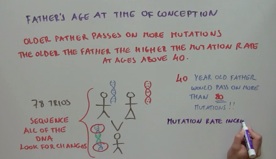 FATHER'S AGE AT TIME OF CONCEPTION
OLDER FATHER PASSES ON MORE MUTATIONS
THE OLDER THE FATHER THE HIGHER THE MUTATION RATE
AT AGES ABOVE 40.
40 YEAR OLD FATHER
WOULD PASS ON MORE
THAN
MUTATIONS!!
78 TRIOS
SEQUENCE
ALL OF THE
DNA
LOOK FOR CHANGES
MUTATION RATE INCREA